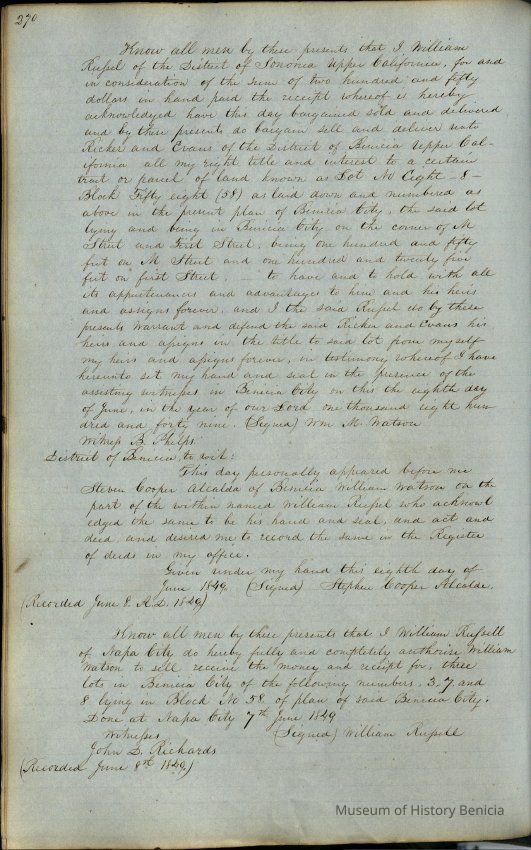 270
Know all men by these presents that I William
Russel of the District of Sonoma Upper California, for and
in consideration of the sum of two hundred and fifty
dollars in hand paid the receipt whereof is hereby
acknowledged have this day bargained sold and delivered
and by these presents do bargain sell and deliver unto
Ricker and Evans of the District of Benicia Upper Cal-
ifornia all my right title and interest to a certain
trait or parcel of land known as Lot No Eight - 8 -
Block Fifty eight (58) as laid down and numbered as
above in the present plan of Benicia City, the said lot
lying and being in Benicia City on the corner of M
Street and First Street, being one hundred and fifty
feet on M Street and one hundred and twenty five
feet on first Street, — to have and to hold with all
its appurtenances and advantages to him and his heirs
and assigns forever, and I the said Russel do by these
presents warrant and defend the said Ricker and Evans his
heirs and assigns in the title to said lot from myself
my heirs and assigns forever, in testimony whereof I have
hereunto set my hand and seal in the presence of the
assisting witnesses in Benicia City on this the eighth day
of June, in the year of our Lord one thousand eight hun-
dred and forty nine. (Signed) Wm M. Watson
Witness B. Phelps.
District of Benicia, to wit:
This day personally appeared before me
Steven Cooper Alcalda of Benicia William Watson on the
part of the within named William Russel who acknowl
edged the same to be his hand and seal, and act and
deed, and desired me to record the same in the Register
of deeds in my office.
Given under my hand this eighth day of
June 1849. (Signed) Stephen Cooper Alcalde.
(Recorded June 8. A.D. 1849)
Know all men by these presents that I William Russell
of Napa City do hereby fully and completely authorise William
Watson to sell receive the money and receipt for, three
lots in Benicia City of the following numbers. 3. 7. and
8 lying in Block No 58. of plan of said Benicia City.
Done at Napa City 7th June 1849
Witnesses (Signed) William Russell
John D. Richards
(Recorded June 8th 1849)
Museum of History Benicia